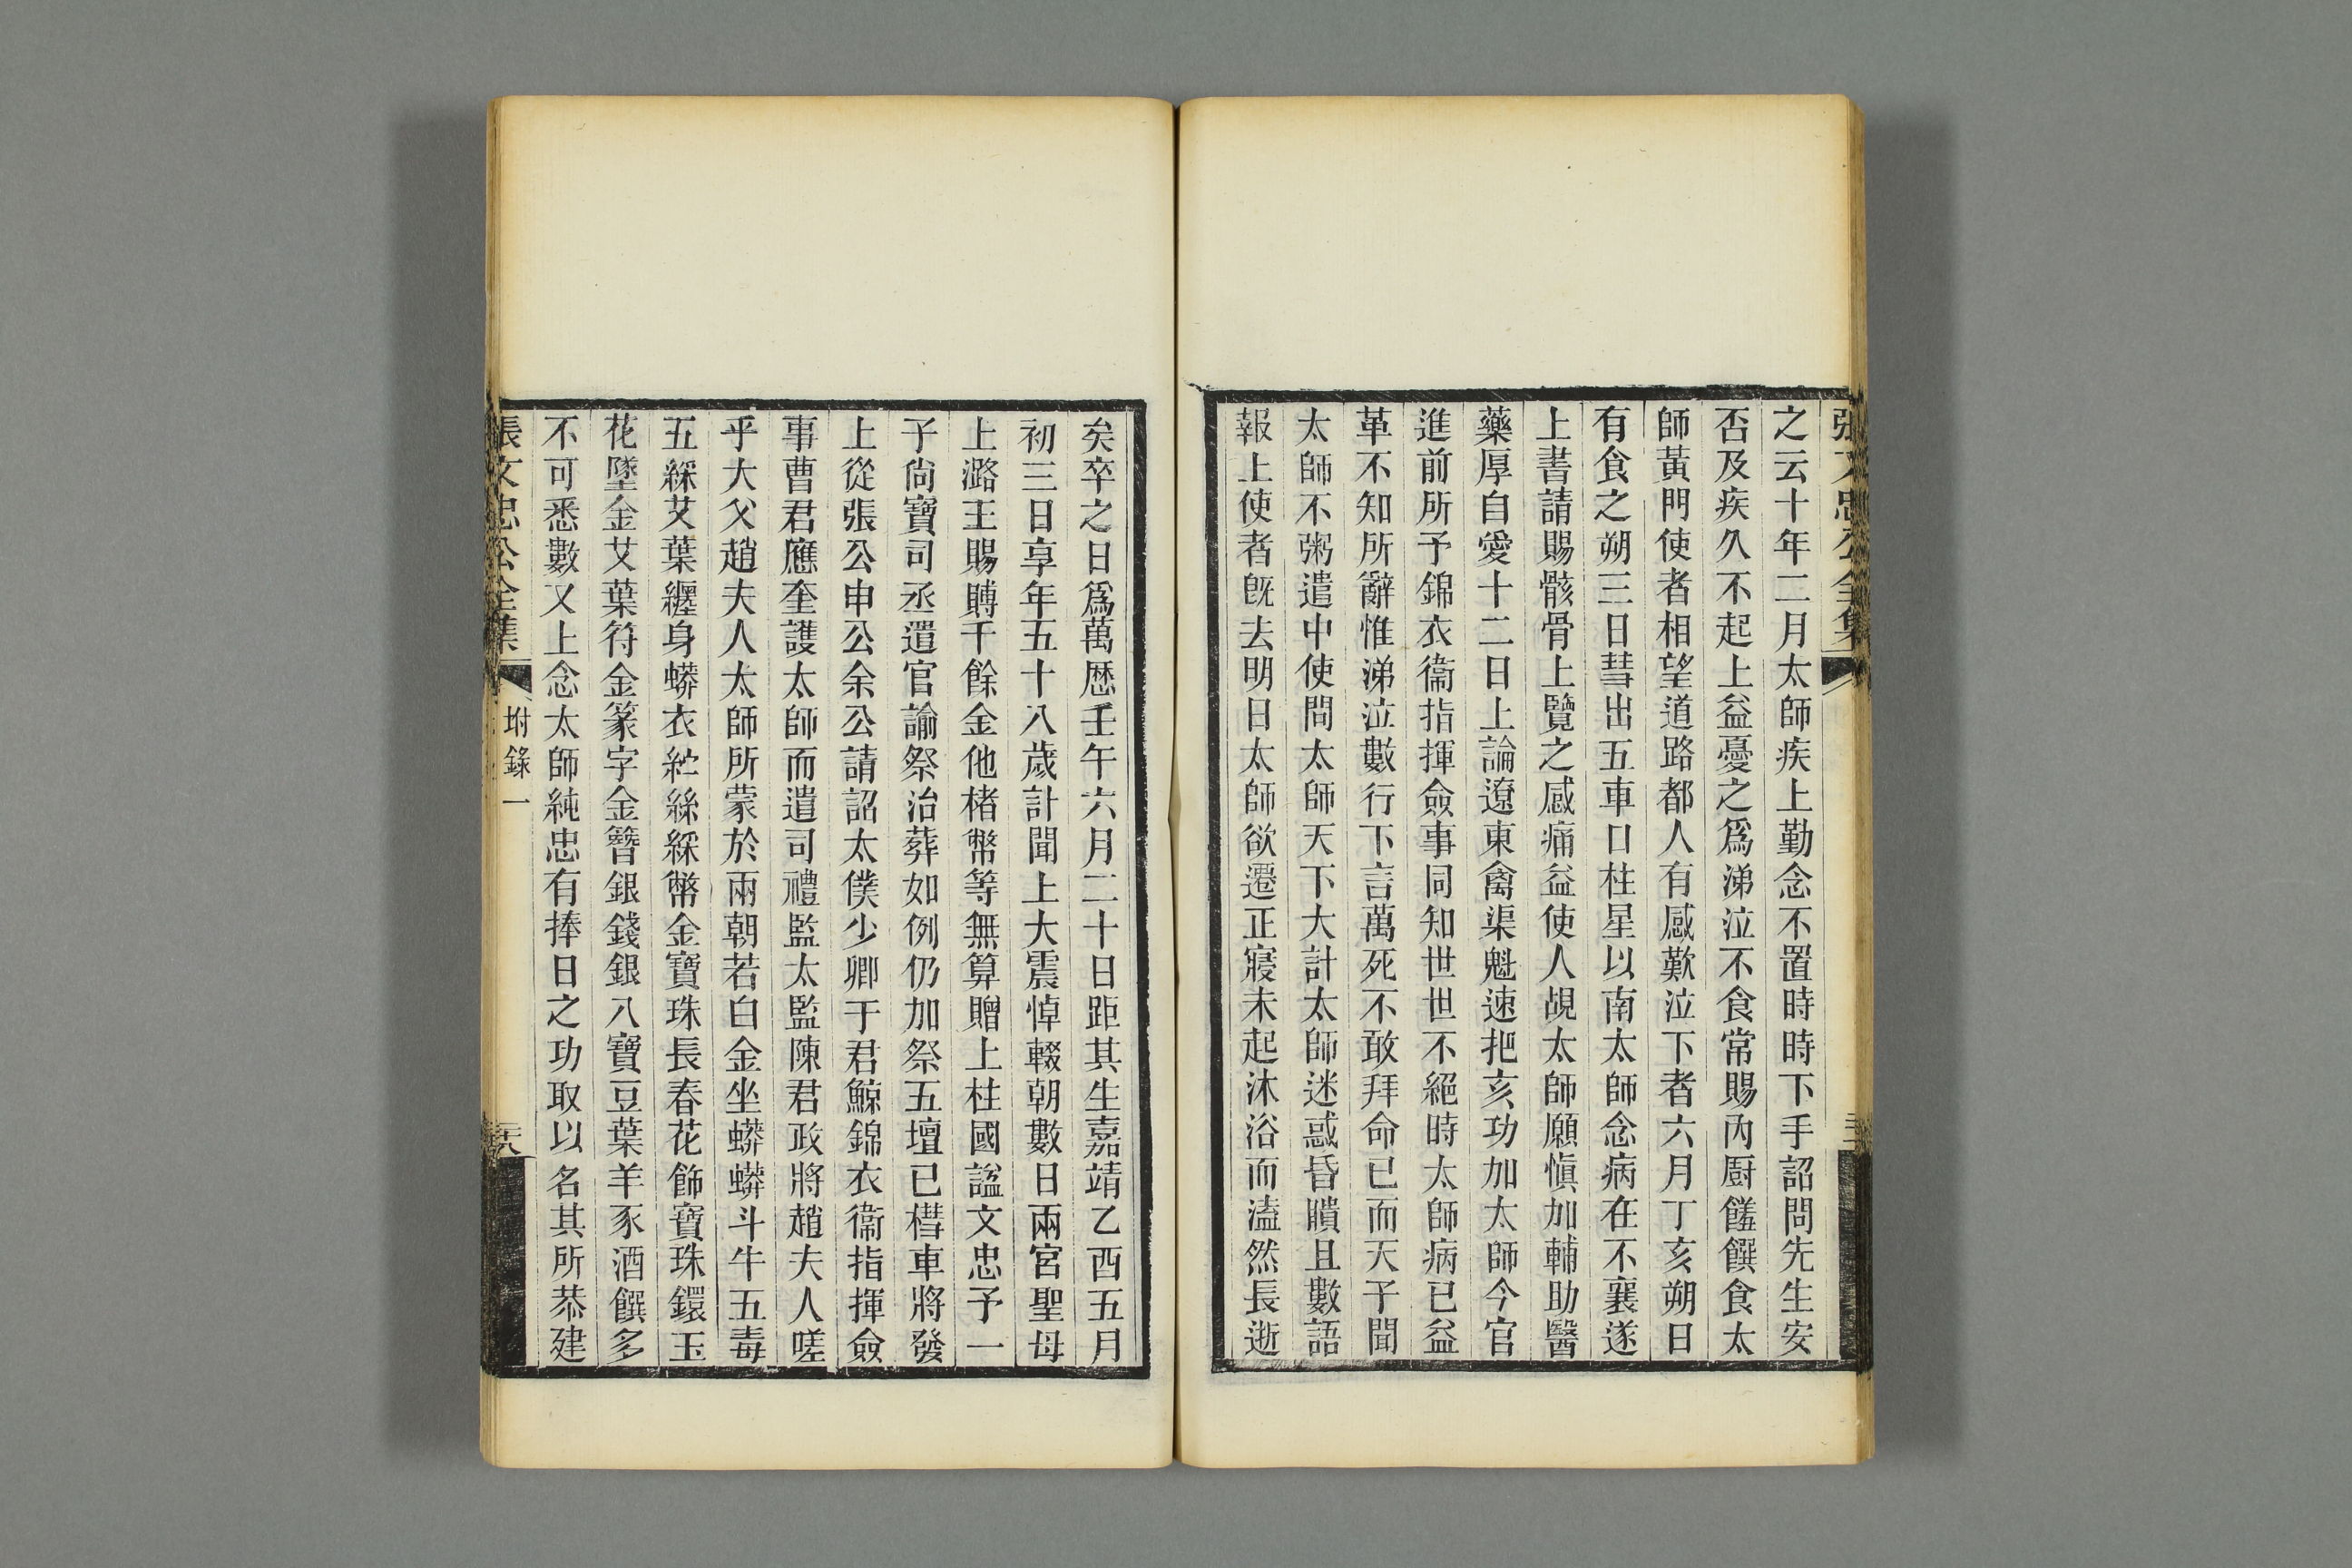 張文忠公全集
之云十年二月太師疾上勤念不置時時下手詔問先生安
否及疾久不起上益憂之爲涕泣不食常賜內厨饈饌食太
師黃門使者相望道路都人有感歎泣下者六月丁亥朔日
有食之朔三日彗出五車口柱星以南太師念病在不襄遂
上書請賜骸骨上覽之感痛益使人覘太師願愼加輔助醫
藥厚自愛十二日上論遼東禽渠魁速把亥功加太師今官
進前所予錦衣衞指揮僉事同知世世不絕時太師病已益
革不知所辭惟涕泣數行下言萬死不敢拜命已而天子聞
太師不粥遣中使問太師天下大計太師迷惑昏瞶且數語
報上使者旣去明日太師欲遷正寢未起沐浴而溘然長逝
矣卒之日爲萬歷壬午六月二十日距其生嘉靖乙酉五月
初三日享年五十八歲計聞上大震悼輟朝數日兩宮聖母
上潞王賜賻千餘金他楮幣等無算贈上柱國諡文忠予一
子尙寶司丞遣官諭祭治葬如例仍加祭五壇已槥車將發
上從張公申公余公請詔太僕少卿于君鯨錦衣衞指揮僉
事曹君應奎護太師而遣司禮監太監陳君政將趙夫人嗟
乎大父趙夫人太師所蒙於兩朝若白金坐蟒蟒斗牛五毒
五綵艾葉纏身蟒衣紵絲綵幣金寶珠長春花飾寶珠鐶玉
花墜金艾葉符金篆字金簪銀錢銀八寶豆葉羊豕酒饌多
不可悉數又上念太師純忠有捧日之功取以名其所恭建
張文忠公全集
坿錄一